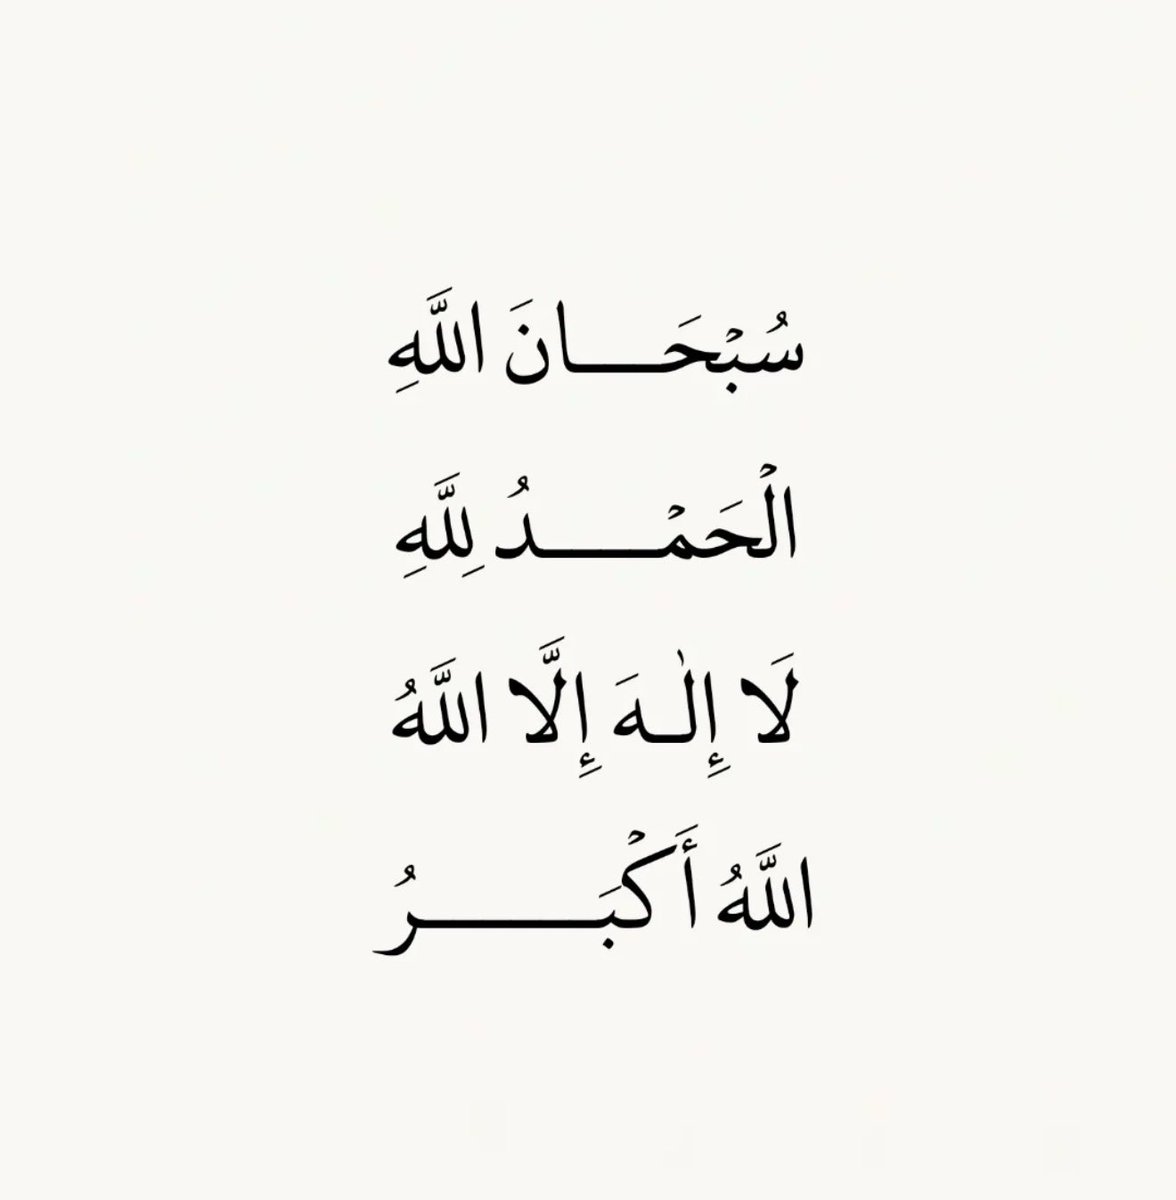 سُبْحَـــانَ اللَّهِ
الْحَمْـــــدُ لِلَّهِ
لَا إِلَٰـهَ إِلَّا اللَّهُ
اللَّهُ أَكْبَـــــــرُ